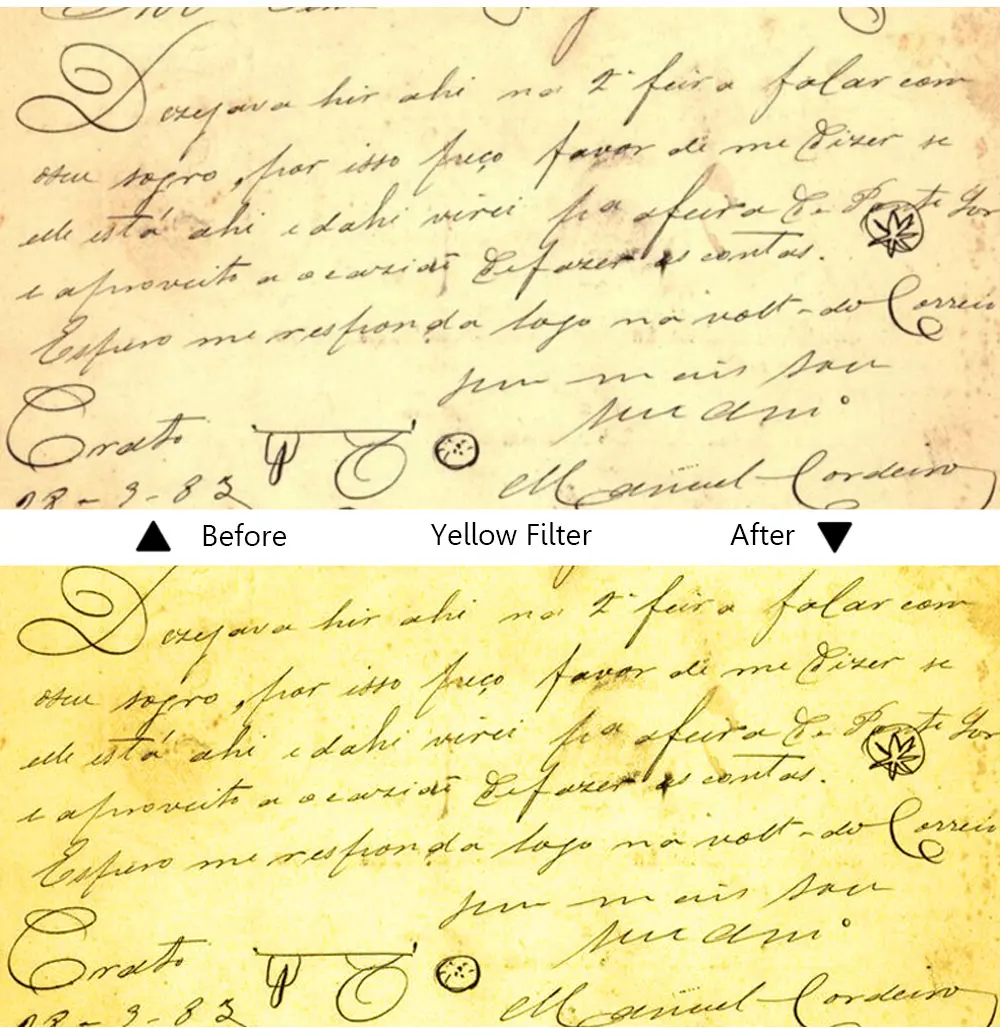 Dezejava hir ahi na 2ª feira falar com
o seu sogro, por isso peço favor de me dizer se
elle está ahi e dahi virei pª a feira de Ponte Sor
e aproveito a ocazião de fazer as contas.
Espero me responda logo na volt-do Correio
sem mais sou
seu amº
Crato
Manuel Cordeiro
28-3-83
Before Yellow Filter After
Dezejava hir ahi na 2ª feira falar com
o seu sogro, por isso peço favor de me dizer se
elle está ahi e dahi virei pª a feira de Ponte Sor
e aproveito a ocazião de fazer as contas.
Espero me responda logo na volt-do Correio
sem mais sou
seu amº
Crato
Manuel Cordeiro
28-3-83